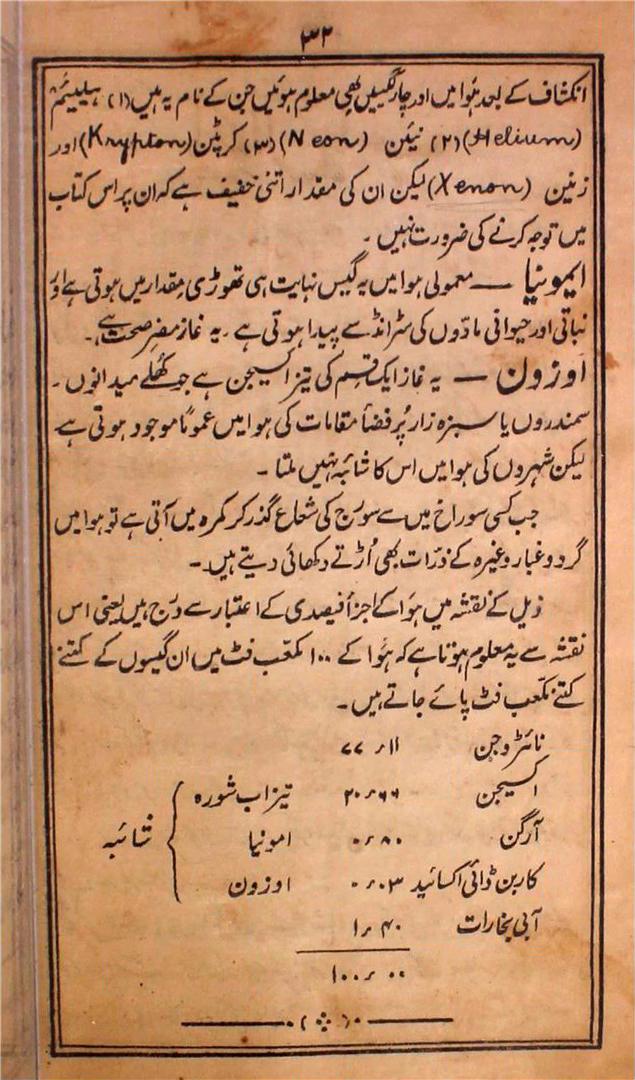 ۳۲
انکشاف کے بعد ہوا میں اور چار گیسیں بھی معلوم ہوئیں جن کے نام یہ ہیں (۱) ہیلیئم
(Helium) (۲) نیئن (Neon) (۳) کرپٹن (Krypton) اور
زنین (Xenon) لیکن ان کی مقدار اتنی خفیف ہے کہ ان پر اس کتاب
میں توجہ کرنے کی ضرورت نہیں ۔
ایمونیا — معمولی ہوا میں یہ گیس نہایت ہی تھوڑی مقدار میں ہوتی ہے اور
نباتی اور حیوانی مادّوں کی سٹرانڈ سے پیدا ہوتی ہے ۔ یہ غاز مضر صحت ہے ۔
اوزون — یہ غاز ایک قسم کی تیز اکسیجن ہے جو کھُلے میدانوں ۔
سمندروں یا سبزہ زار پُر فضا مقامات کی ہوا میں عموماً موجود ہوتی ہے
لیکن شہروں کی ہوا میں اس کا شائبہ نہیں ملتا ۔
جب کسی سوراخ میں سے سورج کی شعاع گذر کر کمرہ میں آتی ہے تو ہوا میں
گرد و غبار وغیرہ کے ذرّات بھی اُڑتے دکھائی دیتے ہیں ۔
ذیل کے نقشہ میں ہوا کے اجزأ فیصدی کے اعتبار سے درج ہیں یعنی اس
نقشہ سے یہ معلوم ہوتا ہے کہ ہوا کے ۱۰۰ مکعّب فٹ میں ان گیسوں کے کتنے
کتنے مکعّب فٹ پائے جاتے ہیں ۔
نائٹروجن ۷۷ء۱۱
اکسیجن ۲۰ء۶۶ تیزاب شورہ
آرگن ۰ء۸۰ امونیا } شائبہ
کاربن ڈائی اکسائید ۰ء۰۳ اوزون
آبی بخارات ۱ء۴۰
۱۰۰ء۰۰